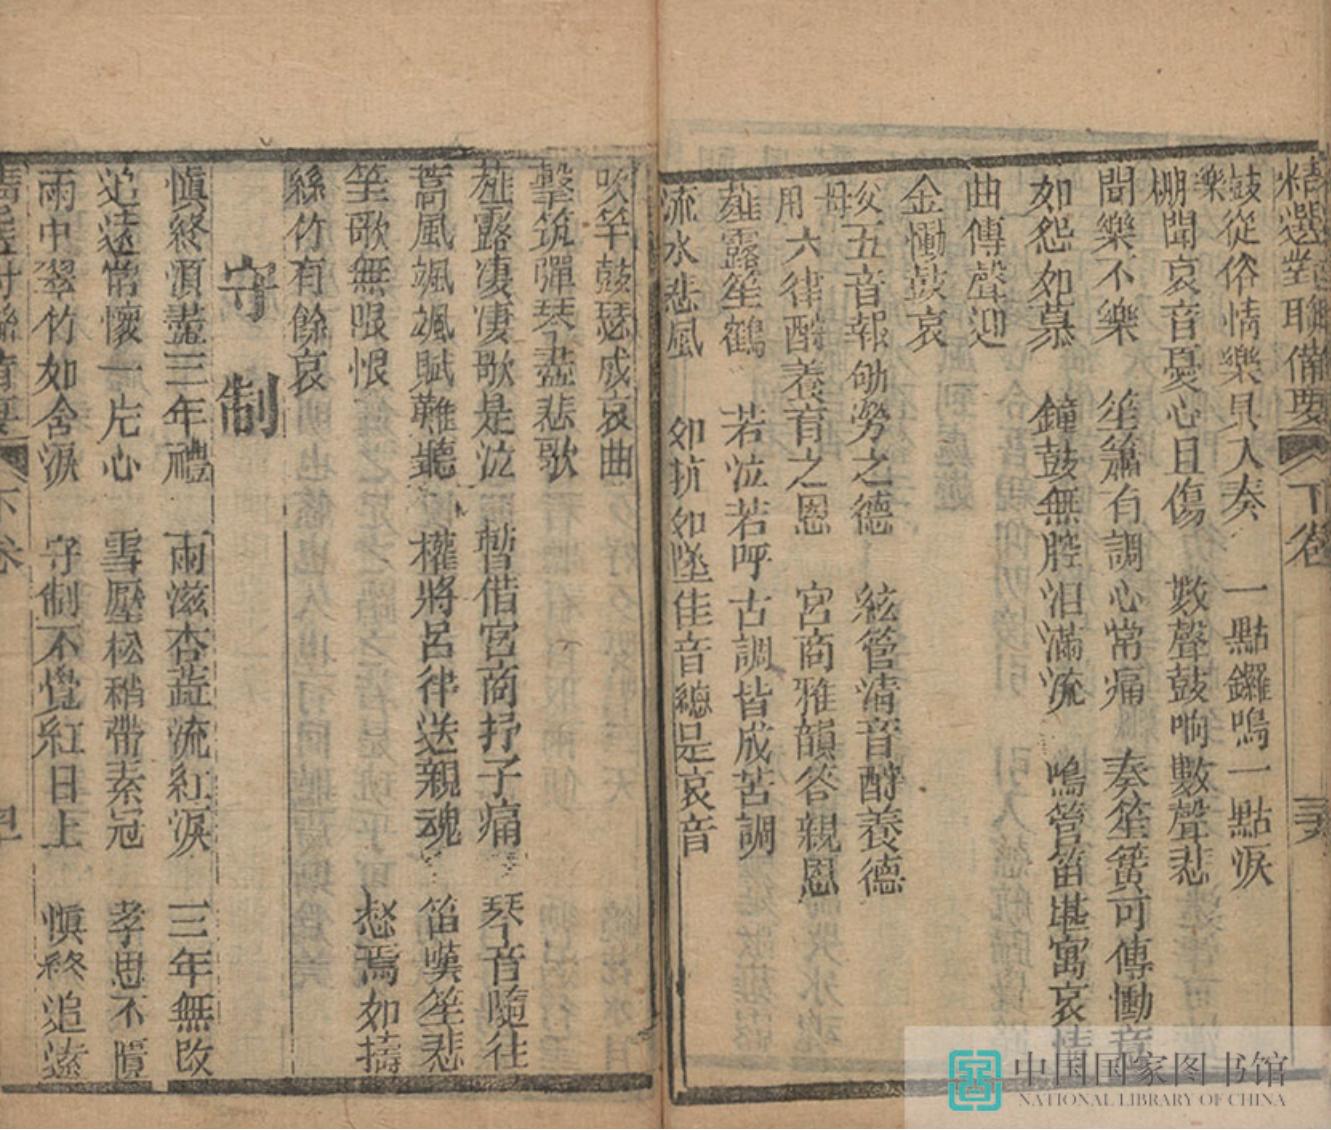 精選對聯備要 下卷
鼓從俗情樂具入奏 一點鑼鳴一點淚
樂
棚聞哀音憂心且傷 數聲鼓响數聲悲
聞樂不樂 笙簫有調心常痛 奏笙簧可傳慟音
如怨如慕 鐘鼓無腔泪滿流 鳴管笛堪寓哀
曲傳聲迎
金慟鼓哀
父五音報劬勞之德 絃管清音酧養德
母
用六律酧養育之恩 宮商雅韻答親恩
薤露笙鶴 若泣若呼古調皆成苦調
流水悲風 如抗如墜佳音總是哀音
吹竽鼓瑟成哀曲
擊筑彈琴盡悲歌
薤露凄凄歌是泣 暫借宮商抒子痛 琴音隨往
蒿風颯颯賦難聽 權將呂律送親魂 笛嘆笙悲
笙歌無限恨 愁焉如擣
絲竹有餘哀
守制
慎終須盡三年禮 雨滋杏蕋流紅淚 三年無改
追遠常懷一片心 雪壓松稍帶素冠 孝思不匱
雨中翠竹如含淚 守制不覺紅日上 慎終追遠
下卷
中国国家图书馆
NATIONAL LIBRARY OF CHINA